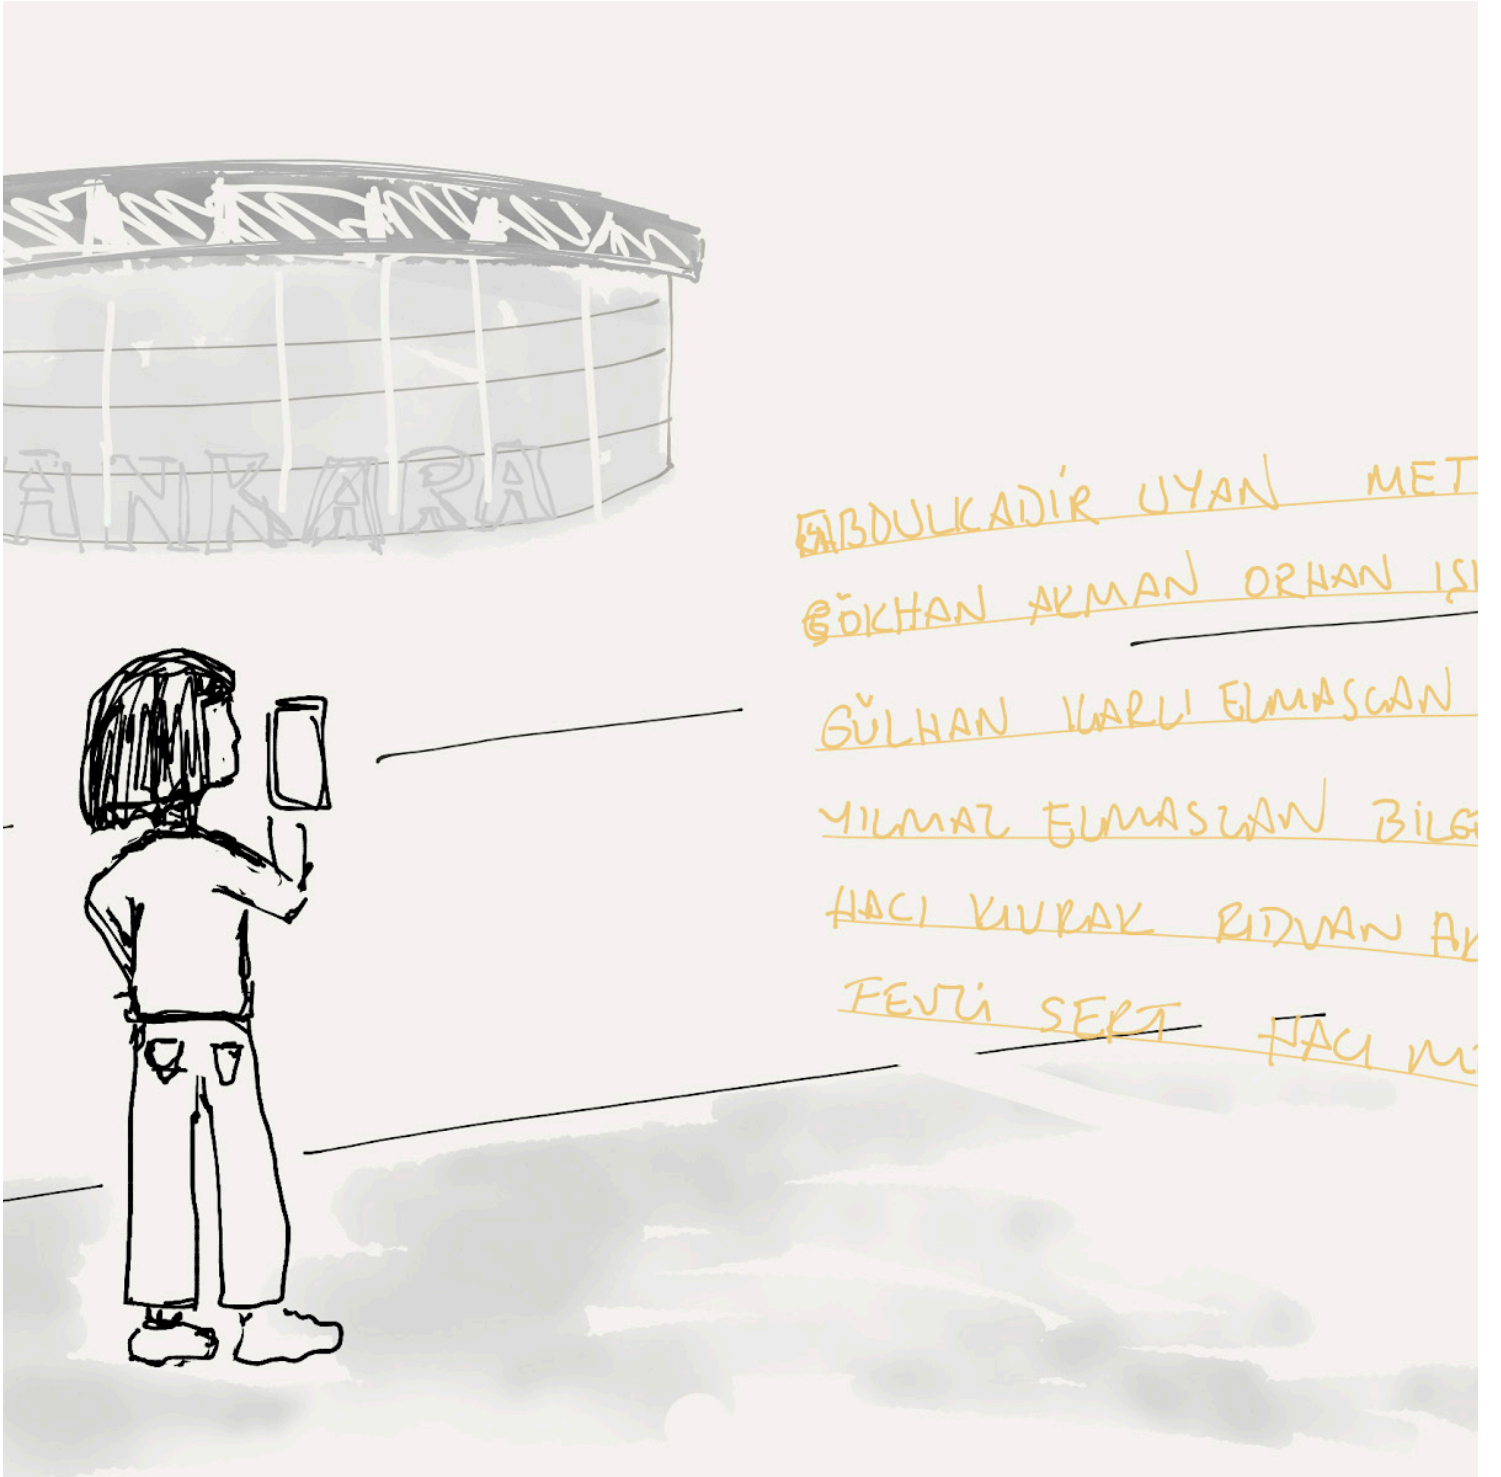 ANKARA
ABDULKADİR UYAN MET
GÖKHAN AKMAN ORHAN IŞI
GÜLHAN KARLI ELMASCAN
YILMAZ ELMASCAN BİLGE
HACI KIVRAK RIDVAN AK
FEVZİ SERT HACI Mİ